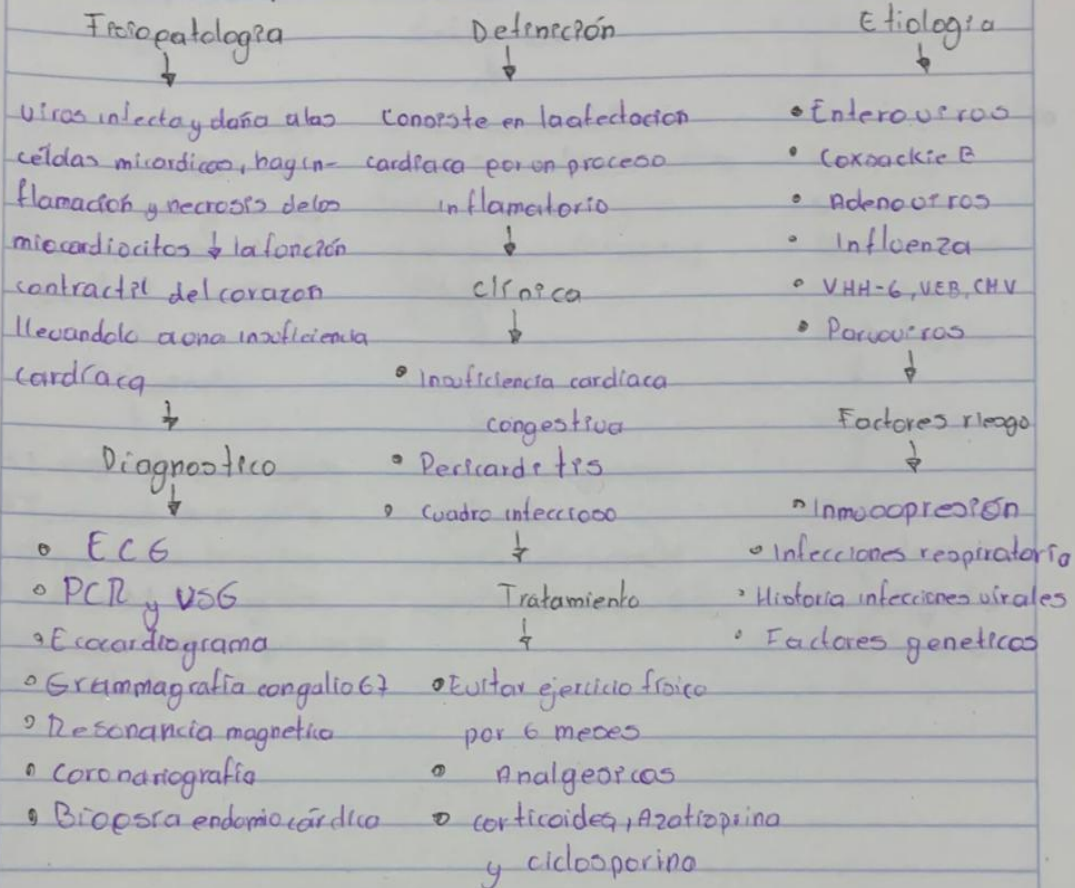 Fisiopatologia
↓
virus infecta y daña a las
células micordicas, hay in-
flamación y necrosis de los
miocardiocitos ↓ la función
contractil del corazon
llevandolo a una insuficiencia
cardíaca
↓
Diagnostico
↓
• ECG
• PCR y VSG
• Ecocardiograma
• Grammagrafía con galio 67
• Resonancia magnetica
• Coronariografía
• Biopsia endomiocárdica
Definición
↓
Consiste en la afectacion
cardíaca por un proceso
inflamatorio
↓
clínica
↓
• Insuficiencia cardíaca
congestiva
• Pericarditis
• Cuadro infeccioso
↓
Tratamiento
↓
• Evitar ejercicio físico
por 6 meses
• Analgesicos
• corticoides, Azatioprina
y ciclosporina
Etiologia
↓
• Enterovirus
• Coxsackie B
• Adenovirus
• Influenza
• VHH-6, VEB, CHV
• Parvovirus
↓
Factores riesgo
↓
• Inmunopresión
• Infecciones respiratoria
• Historia infecciones virales
• Factores geneticos